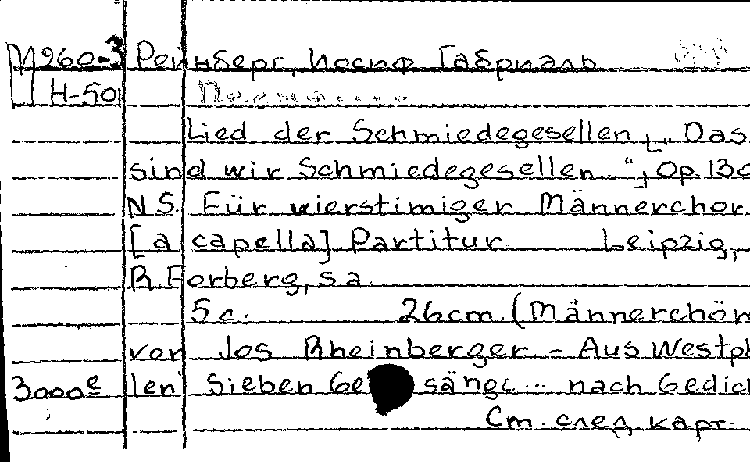 М960-3 Рейнберг, Иосиф Габриэль
Н-50
Lied der Schmiedegesellen „Das
sind wir Schmiedegesellen..“, Op. 130
N 5. Für vierstimiger Männerchor
[a capella] Partitur Leipzig,
R. Forberg, s.a.
5 с. 26cm. (Männerchör
von Jos Rheinberger – Aus Westph
3000е len Sieben Gesänge... nach Gedic
См. след. карт.